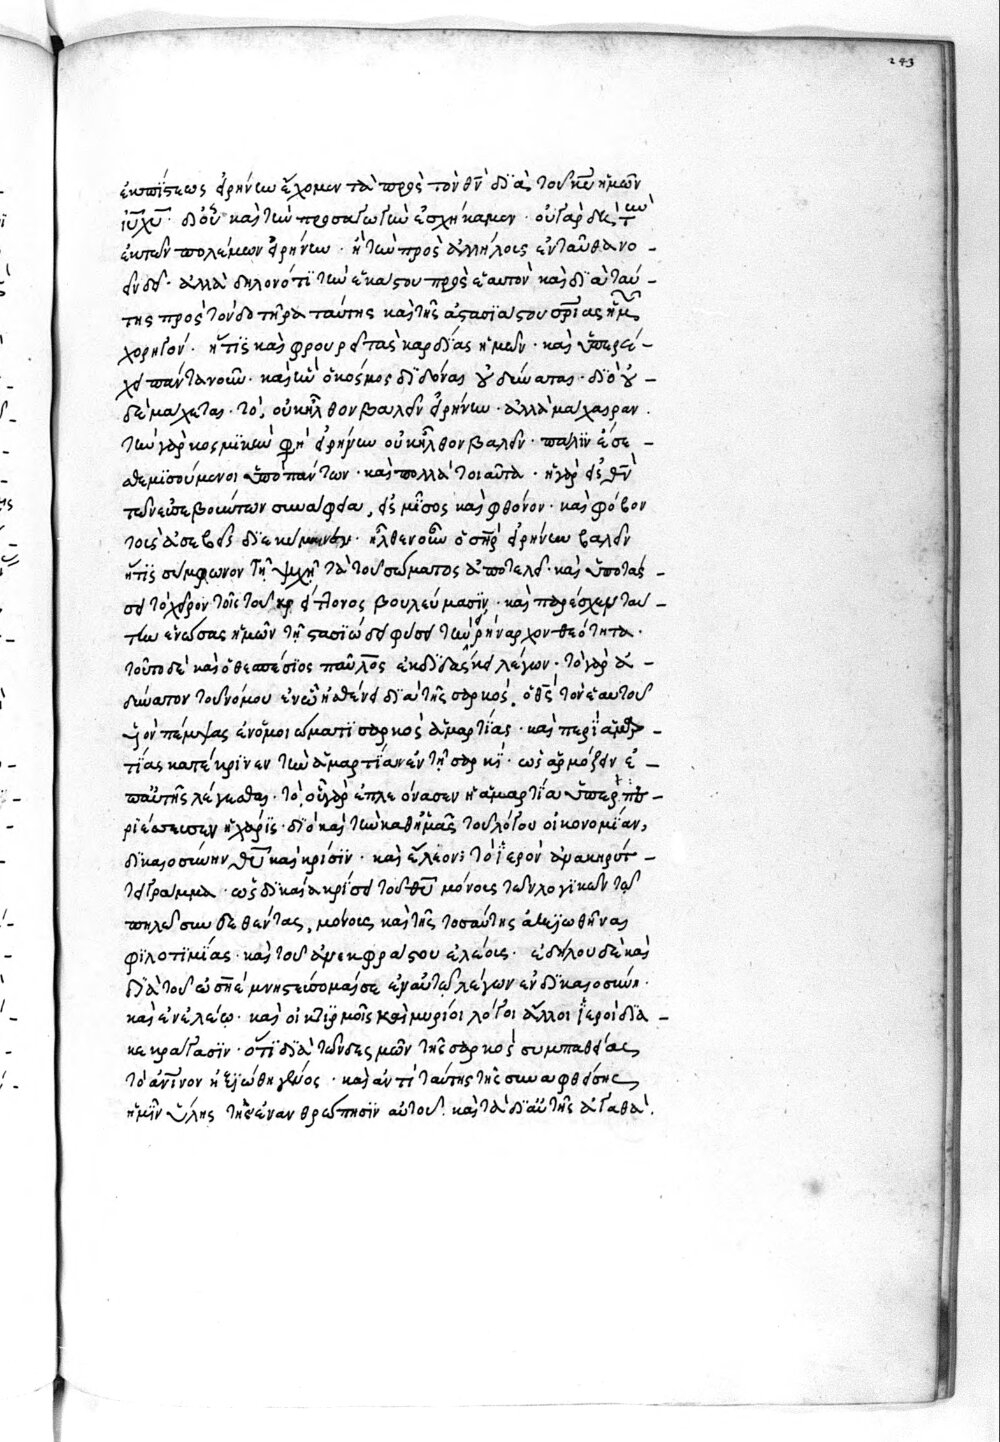 243
ἐκ πίστεως εἰρήνην ἔχομεν τὰ πρὸς τὸν θν̄ διὰ τοῦ κῡ ἡμῶν
ιῡ χῡ· δι οὗ καὶ τὴν προσαγωγὴν ἐσχήκαμεν· οὐ γὰρ δὲ τὴν
ἐκ τῶν πολέμων εἰρήνην· ἢ τὴν πρὸς ἀλλήλους ἐνταῦθα νο-
εῖν δεῖ· ἀλλὰ δηλονότι τὴν ἑκάστου πρὸς ἑαυτὸν καὶ διὰ ταύ-
της πρὸς τὸν δοτῆρα ταύτης καὶ τῆς ἀστασιάστου σρίας ἡμῖν
χορηγόν· ἥτις καὶ φρουρεῖ τὰς καρδίας ἡμῶν· καὶ ὑπερεί-
χε πάντα νοῦν· καὶ ἣν ὁ κόσμος διδόναι οὐ δύναται· διὸ οὐ-
δὲ μάχεται· τὸ, οὐκ ἦλθον βαλεῖν εἰρήνην· ἀλλὰ μάχαιραν·
τὴν γὰρ κοσμικὴν φη εἰρήνην οὐκ ἦλθον βαλεῖν· πάλιν ἔσε-
σθε μισούμενοι ὑπὸ πάντων· καὶ πολλὰ τοιαῦτα· ἡ γὰρ εἰς θν̄
τῶν εὐσεβούντων συνάφεια, εἰς μῖσος καὶ φθόνον· καὶ φόβον
τοῖς ἀσεβέσι διεκινήθη· ἦλθεν οὖν ὁ σηρ εἰρήνην βαλεῖν
ἥτις σύμφωνον τῇ ψυχῇ τὰ τοῦ σώματος ἀποτελεῖ· καὶ ὑποτάσ-
σει τὸ χεῖρον τοῖς τοῦ κρείττονος βουλεύμασιν· καὶ παρέσχεν ταύ-
την ἑνώσας ἡμῶν τῇ στασιώδει φύσει τὴν εἰρήναρχον θεότητα·
τοῦτο δὲ καὶ ὁ θεσπέσιος παῦλος ἐκδιδάσκει λέγων· τὸ γὰρ ἀ-
δύνατον τοῦ νόμου ἐν ᾧ ἠσθένει διὰ τῆς σαρκὸς, ὁ θς̄ τὸν ἑαυτοῦ
υἱὸν πέμψας ἐν ὁμοιώματι σαρκὸς ἁμαρτίας· καὶ περὶ ἁμαρ-
τίας κατέκρινεν τὴν ἁμαρτίαν ἐν τῇ σαρκὶ· ὡς ἁρμόζειν ἐ-
π αὐτῆς λέγεσθαι· τὸ, οὗ γὰρ ἐπλεόνασεν ἡ ἁμαρτία ὑπερπε-
ριέσσευσεν ἡ χάρις· διὸ καὶ τὴν καθ ἡμᾶς τοῦ λόγου οἰκονομίαν,
δικαιοσύνην θῡ καὶ κρίσιν· καὶ ἔλεον· τὸ ἱερὸν ἀνακηρύτ-
τει γράμμα· ὡς δικαίᾳ κρίσει τοῦ θῡ μόνοις τῶν λογικῶν τῷ
πηλῷ συνδεθέντας, μόνους καὶ τῆς τοσαύτης ἀξιωθῆναι
φιλοτιμίας· καὶ τοῦ ἀνεκφράστου ἐλέους· ἐδήλου δὲ καὶ
διὰ τοῦ ὡσηὲ μνηστεύσομαί σε ἐμαυτῷ λέγων ἐν δικαιοσύνῃ·
καὶ ἐν ἐλέῳ· καὶ οἰκτιρμοῖς καὶ μυρίοι λόγοι ἄλλοι ἱεροὶ δια-
κεκράγασιν· ὅτι διὰ τὴν δεσμῶν τῆς σαρκὸς συμπαθείας,
τὸ ἀνινον ἠξιώθη γένος· καὶ ἀντὶ ταύτης τῆς συναφθείσης
ἡμῖν ὕλης τῆς ἐνανθρωπήσιν αὐτοῦ· καὶ τὰ δι αὐτῆς ἀγαθὰ.